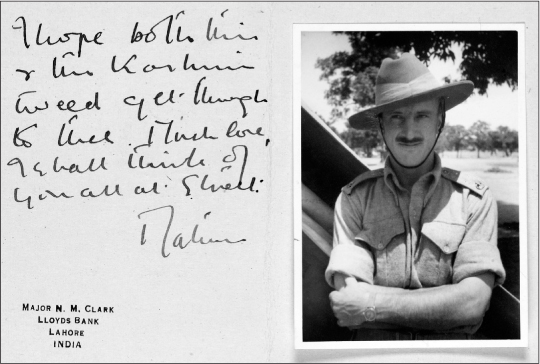 I hope both this
& the Kashmir
tweed get through
to thee. Much love,
I shall think of
you all at Street.
MAJOR N. M. CLARK
LLOYDS BANK
LAHORE
INDIA